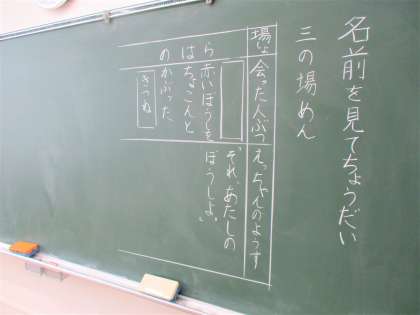 名前を見てちょうだい
三の場めん
場しょ
会った人ぶつ
えっちゃんのようす
のはら
赤いぼうしを
ちょこんと
かぶった、
きつね
「それ、あたしの
ぼうしよ。」